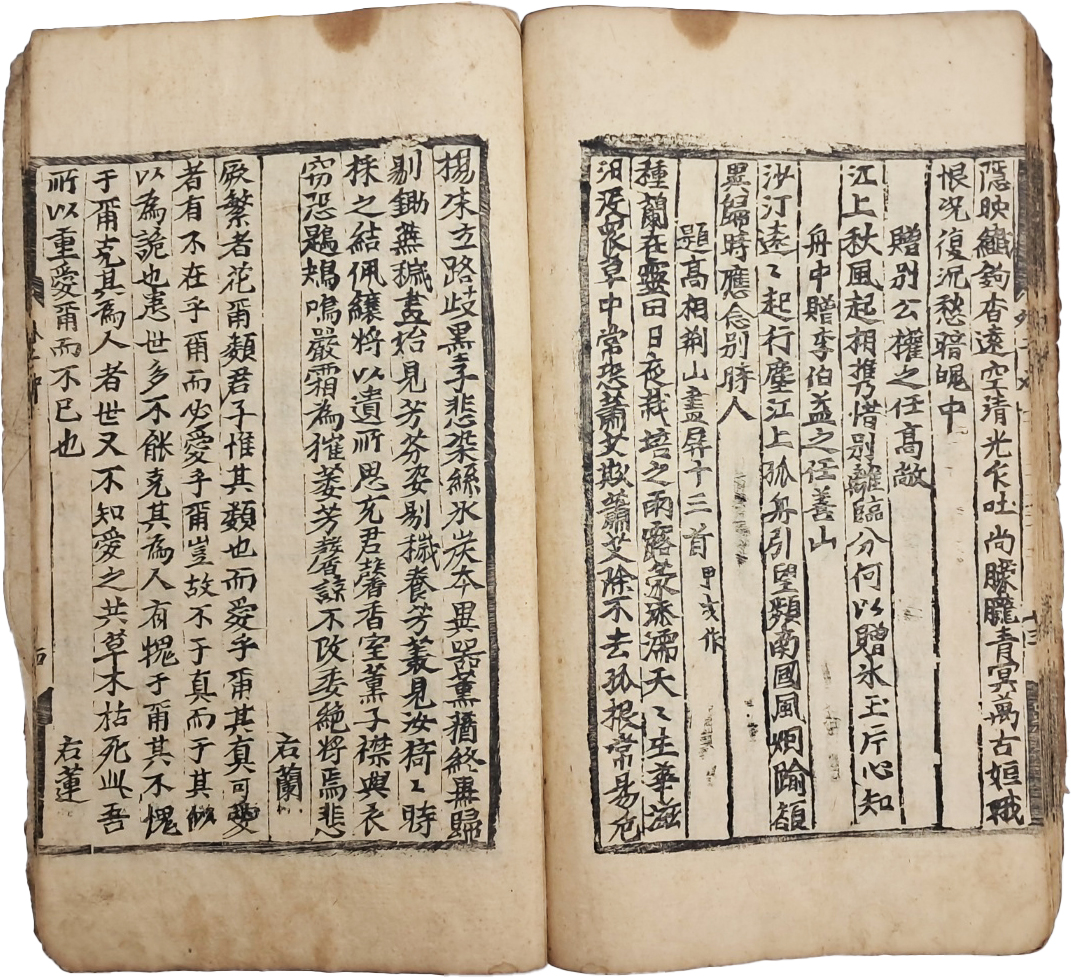 隱映纖鉤杳遠空清光乍吐尚朦朧青冥萬古姮娥
恨況復況愁暗魄中
贈別公權之任高敞
江上秋風起扁推乃惜別離臨分何以贈氷玉斤心知
舟中贈李伯益之任善山
沙汀遠〻起行塵江上孤舟引望頻南國風烟踰嶺
異歸時應念別時人
題高相荊山畫屛十三首 甲亥作
種蘭在靈田日夜栽培之雨露蒙添濡天〻生華滋
汨沒衆草中常恐蕭艾欺蕭艾除不去孤根常易危
楊朱立路歧黑子悲染絲氷炭本異器薰蕕終異歸
剔鋤蕪穢盡始見芳芬姿剔穢養芳叢見汝猗〻時
採之結佩纕將以遺所思充君馨香室薰子襟與衣
窃恐鶗鴂鳴嚴霜為摧萎芳馨諒不改委絶將焉悲
右蘭
厥繁者花爾類君子惟其類也而愛乎爾其眞可愛
者有不在乎爾而必愛乎爾豈故不于眞而于其似
以為詭也患世多不能克其為人有愧于爾其不愧
于爾克其為人者世又不知愛之共草木枯死此吾
所以重愛爾而不已也
右蓮